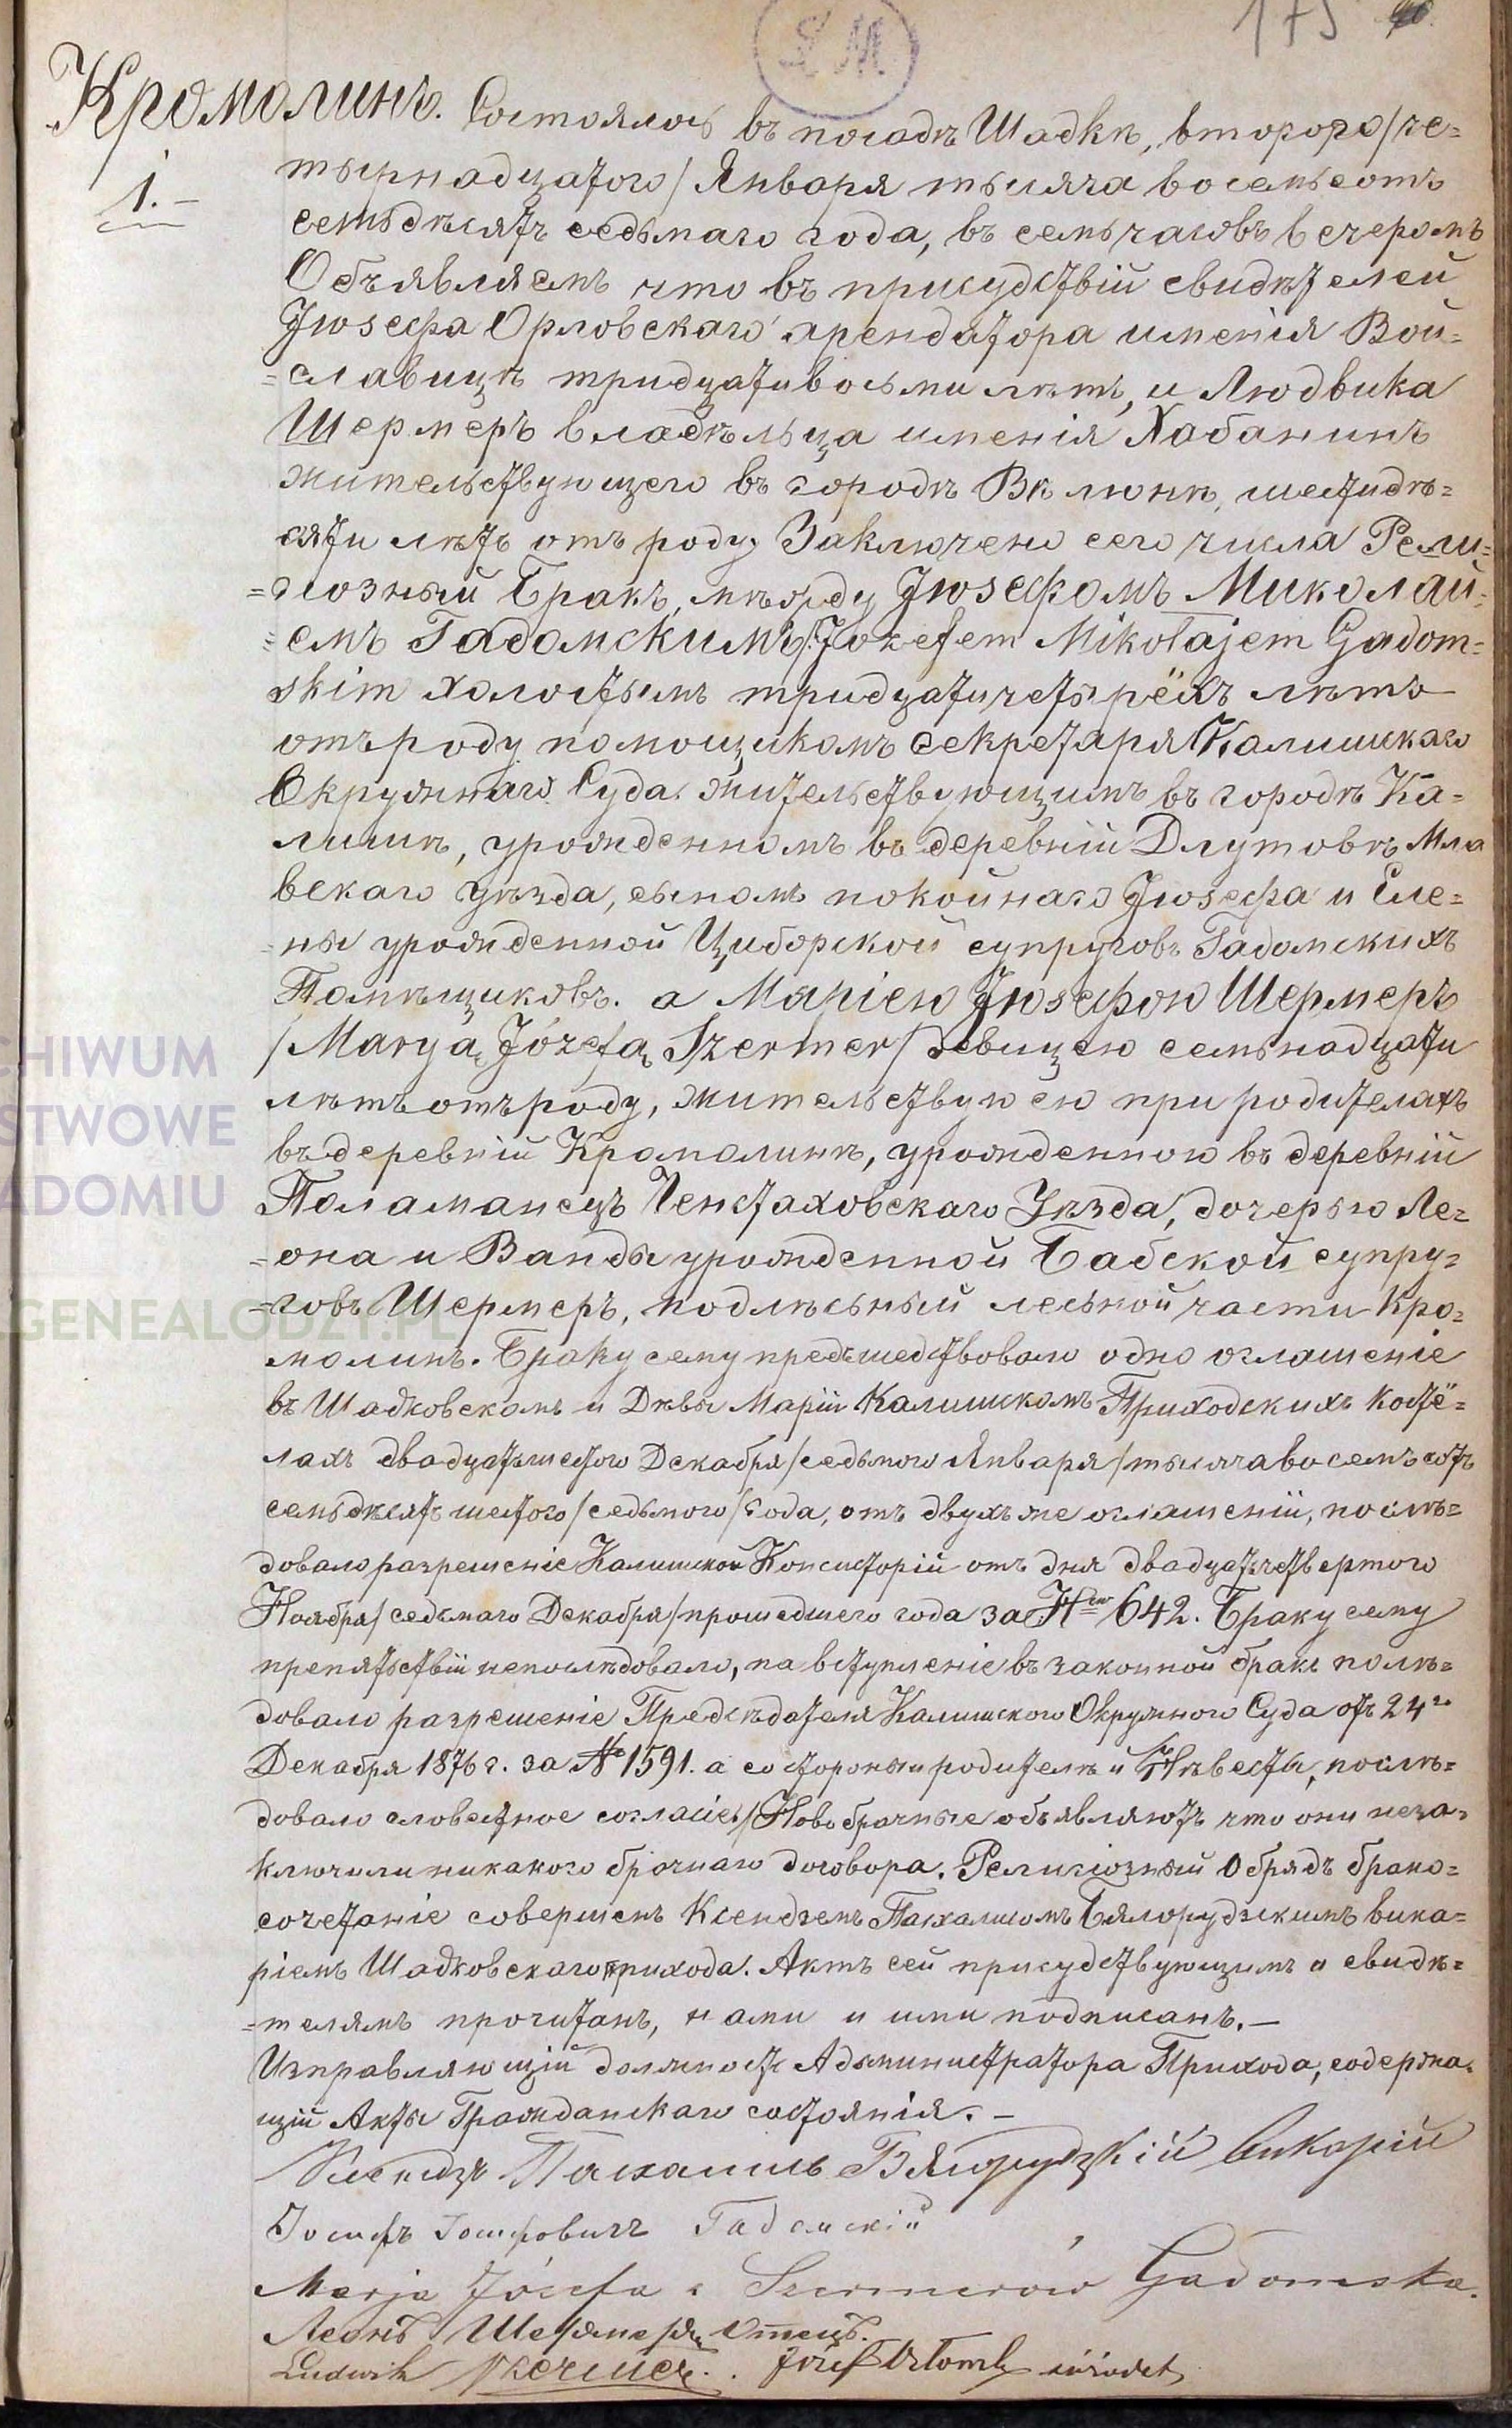 175
S M
Кромолинъ. Состоялось въ посадѣ Шадкѣ, второго/че=
1.-
тырнадцатого/ Января тысяча восемьсотъ
семьдѣсятъ седьмаго года, въ семь часовъ вечеромъ
Объявляемъ что въ присудствіи свидѣтелей
Іюзефа Орловскаго арендатора именія Вой=
=славицѣ тридцативосьми лѣтъ, и Людвика
Шермеръ владѣльца именія Хабанинъ
жительствующего въ городѣ Вѣлюнѣ, шестидѣ=
сяти лѣтъ отъ роду Заключено сего числа Рели=
=гіозный Бракъ, мѣжду Іюзефомъ Миколай=
=емъ Гадомскимъ/Józefem Mikołajem Gadom=
skim холостымъ тридцатичетырёхъ лѣтъ
отъ роду помощикомъ секретаря Калишскаго
Окружнаго Суда. жительствующимъ въ городѣ Ка=
лишѣ, урожденномъ въ деревніи Длутовѣ Мла
вскаго уѣзда, сыномъ покойнаго Іюзефа и Еле=
=ны урожденной Циборской супруговъ Гадомскихъ
Помѣщиковъ. а Маріею Іюзефою Шермеръ
/Maryą Józefą Szermer/ девицею семьнадцати
лѣтъ отъ роду, жительствующею при родителахъ
въ деревніи Кромолинѣ, урожденною въ деревніи
Поламанецъ Ченстаховскаго Уѣзда, дочерью Ле=
=она и Ванды урожденной Бабской супру=
=говъ Шермеръ, подлѣсьный лесьной части Кро=
молинъ. Браку сему предъшедствовало одно оглашеніе
въ Шадковскомъ и Дѣвы Маріи Калишскомъ Приходскихъ костё=
лахъ двадцатьшестого Декабря/седьмого Января/тысячавосемьсотъ
семьдѣсятъ шестого/седьмого/года, отъ двухъ же оглашеніи, послѣ=
довало разрешеніе Калишской Консисторіи отъ дня двадцатьчетвертого
Ноября/седьмаго Декабря/прошедшего года за № 642. Браку сему
препятьствіи непослѣдовало, на вступленіе въ законной бракъ послѣ=
довало разрешеніе Предсѣдателя Калишского Окружного Суда отъ 24го
Декабря 1876 г. за № 1591. а со стороны родителѣй Нѣвесты, послѣ=
довало словестное согласіе/Новобрачные объявляютъ что они неза=
ключили никакого брачнаго договора. Религіозный Обрядъ брако=
сочетаніе совершенъ Ксендземъ Пасхалисомъ Бялорудзкимъ вика=
ріемъ Шадковскаго прихода. Актъ сей присудствующимъ и свидѣ=
=телямъ прочитанъ, нами и ими подписанъ.—
Изправляющій должность Адыминистратора Прихода, содержа=
щій Акты Гражданскаго состоянія.—
Ксендзъ Пасхалисъ Бялорудзкій Викарій
Іосифъ Іосифовичъ Гадомскій
Marja Józefa z Szermerów Gadomska.
Леонъ Шермеръ Отецъ.
Ludwik Szermer. Józef Orłowski świadek
ARCHIWUM
PAŃSTWOWE
W RADOMIU
GENEALODZY.PL